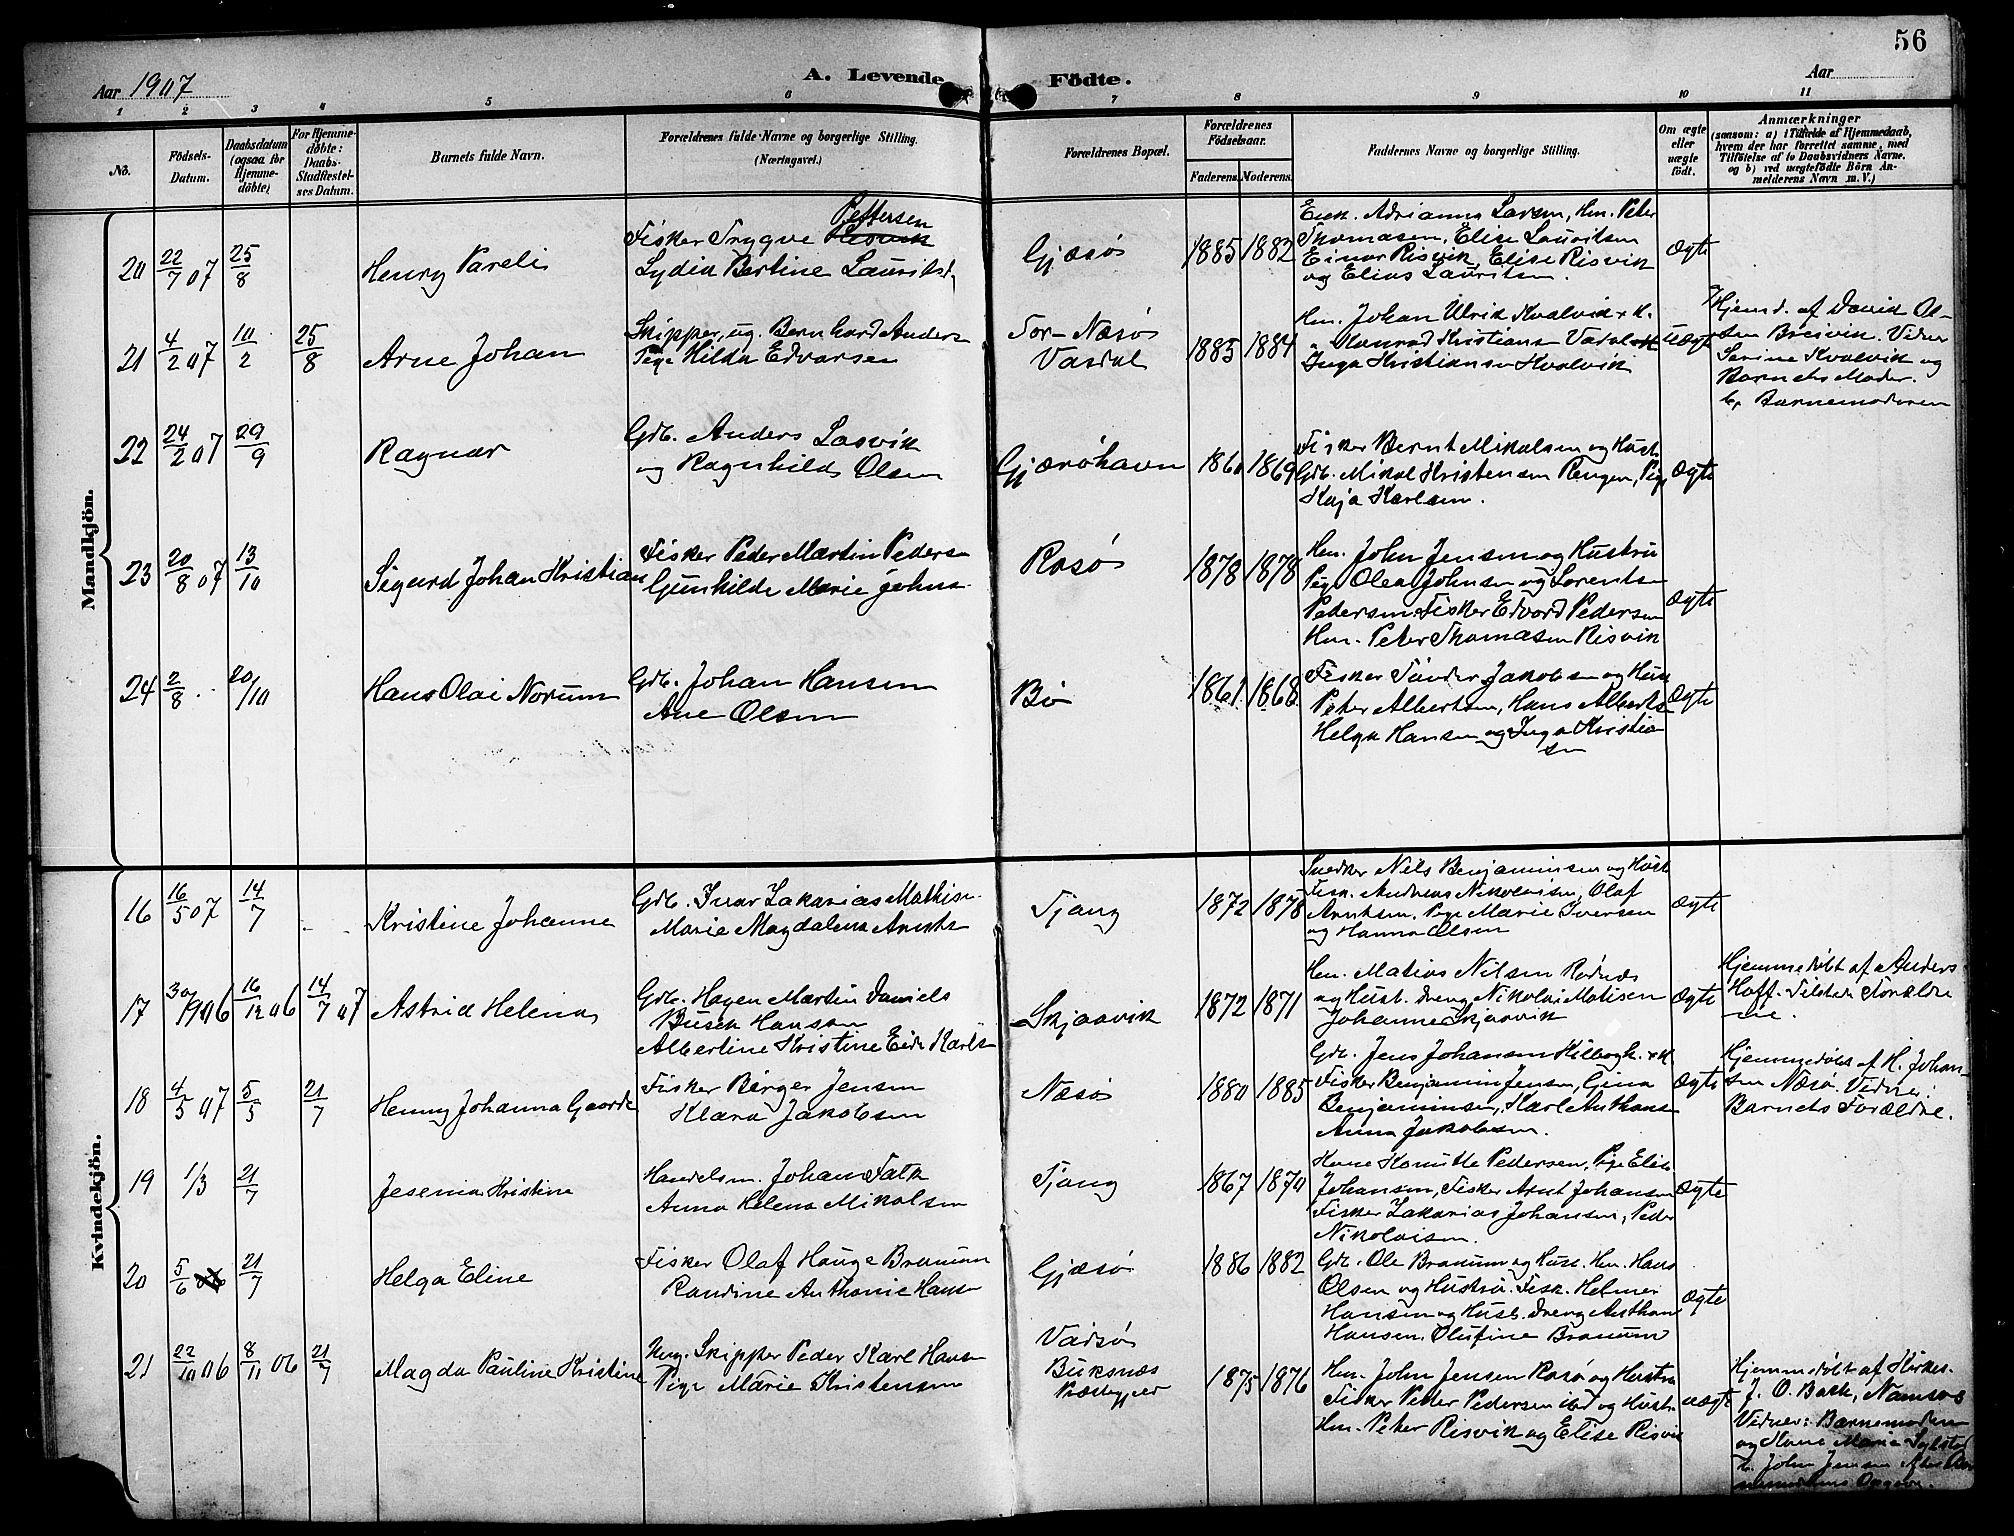 56
Aar 1907
A. Levende Födte.
Aar
1 2 3 4 5 6 7 8 9 10 11
No.
Födsels-Datum.
Daabsdatum (ogsaa for Hjemmedöbte)
For Hjemmedöbte: Daabs-Stadfæstelses Datum.
Barnets fulde Navn.
Forældrenes fulde Navne og borgerlige Stilling. (Næringsvei.)
Forældrenes Bopæl.
Forældrenes Födselsaar.
Faderens. Moderens.
Faddernes Navne og borgerlige Stilling.
Om ægte eller uægte födt.
Anmærkninger
(saasom: a) i Tilfælde af Hjemmedaab, hvem der har forrettet samme, med Tilföielse af to Daabsvidners Navne, og b) ved uægtefödte Börn Anmelderens Navn m. V.)
Mandkjön.
20 22/7 07 25/8
Henry Pareli
Pettersen
Fisker Trygve Risvik
Lydia Bertine Lauritsd.
Gjæsø
1885 1882
Enk. Adrianna Larsen, Hm. Peter
Thomasen, Elise Lauritsen
Einar Risvik, Elise Risvik
og Elias Lauritsen.
Ægte
21 4/2 07 10/2 25/8
Arne Johan
Skipper, ug. Bernhard Anders
Pige Hilda Edvarsen
Tor-Næsø
Vasdal
1885 1884
Hm. Johan Ulrik Kvalvik + K.
" Konrad Kristiansen Vasdal
Inga Kristiansen Kvalvik
Uægte
Hjemd. af David Ol-
sen Breivik. Vidner
Sarine Kvalvik og
Barnets Moder.
b, Barnemoderen
22 24/2 07 29/9
Ragnar
Gdb. Anders Lasvik
og Ragnhild Olsen
Gjærøhavn
1860 1869
Fisker Bernt Mikalsen og Hust.
Gdb. Mikal Kristensen Rengen, Pige
Kaja Karlsen.
Ægte
23 20/8 07 13/10
Sigurd Johan Kristian
Fisker Peder Martin Peders
Gunhilde Marie Johns.
Rosø
1878 1878
Hm. John Jensen og Hustru
Pige Olea Johnsen og Lorents
Pedersen Fisker Edvard Pedersen
Hm. Peter Thomasen Risvik
Ægte
24 2/8 .. 20/10
Hans Olai Norum
Gdb. Johan Hansen
Ane Olsen
Bø
1861. 1868.
Fisker Sander Jakobsen og Hus
Peter Albertsen, Hans Alberts
Helga Hansen og Inga Kristia
sen
Ægte
Kvindekjön.
16 16/5 07 14/7
Kristine Johanne
Gdb. Ivar Zakarias Mathis.
Marie Magdalena Arnts
Tjang
1872 1878
Snedker Nils Benjaminsen og Hust
Fisk. Andreas Nikolaisen, Olaf
Arntsen, Pige Marie Iversen
og Hanna Olsen
Ægte
17 30/9 1906 16/12 06 14/7 07
Astrid Helena
Gdb. Hagen Martin Daniels
Busch Hansen
Albertine Kristine Eide Karls
Skjaavik
1872 1871
Hm. Matias Nilsen Rødnæs
og Hust. Dreng Nikolai Matisen
Johanne Skjaavik
Ægte
Hjemmedøbt af Anders
Hoff. Tilstede Forældre
ne.
18 4/5 07 5/5 21/7
Henny Johanna Gaarde
Fisker Birger Jensen
Klara Jakobsen
Næsø
1880 1885
Gdb. Jens Johansen Kilbogh. + K
Fisker Benjamin Jensen, Gina
Benjaminsen, Karl Anthons
Anna Jakobsen.
Ægte
Hjemmedøbt af H. Johan-
sen Næsø. Vidner:
Barnets Forældre.
19 1/3 21/7
Jesenia Kristine
Handelsm. Johan Falk
Anna Helena Mikalsen
Tjang
1867 1870
Kone Konutte Pedersen, Pige Elise
Johansen, Fisker Arnt Johansen
Fisker Zakarias Johansen, Peder
Nikolaisen.
Ægte
20 5/6 21/7
Helga Eline
Fisker Olaf Hauge Braunm
Randine Anthonie Hans
Gjæsø
1886 1882
Gdb. Ole Braunm og Hust. Hm. Hans
Olsen og Hustru. Fisk. Helmer
Hansen og Hust. Dreng Anthon
Hansen. Olufine Braunm
Ægte
21 22/10 06 8/11 06 21/7
Magda Pauline Kristine
Ung. Skipper Peder Karl Hans
Pige Marie Kristensen
Vadsø
Buksnæs
Præstegjeld
1875 1876
Hm. John Jensen Rosø og Hustru
Fisker Petter Pedersen ibd og Hustr.
Hm. Peter Risvik og Elise Risvik
uægte
Hjemmedøbt af Kirkes.
J. O. Bask, Namsos
Vidner: Barnemoderen
og Kone Marie
b. John Jensen efter Bar
nemoderens Opgave.